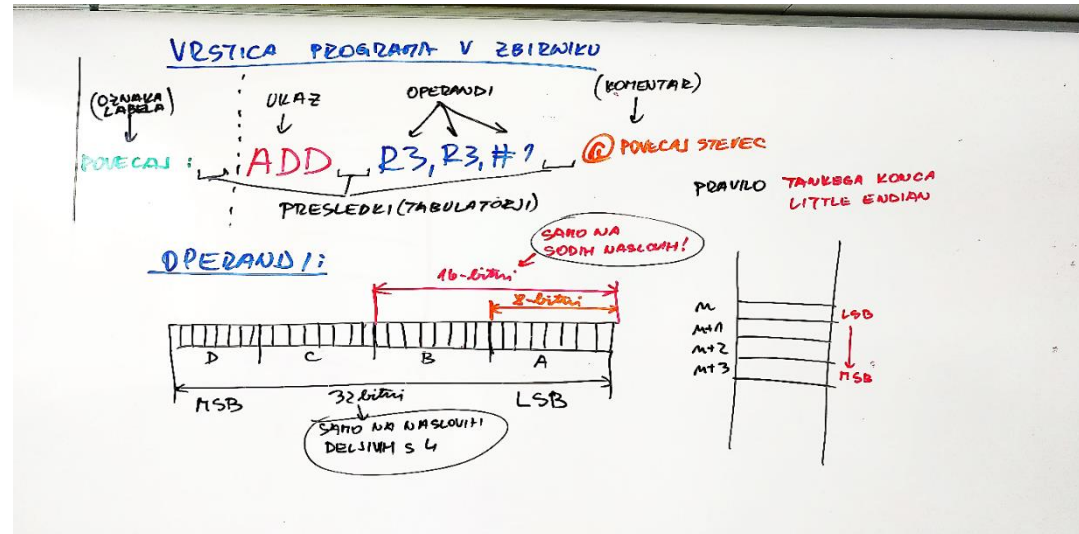 VRSTICA PROGRAMA V ZBIRNIKU
(OZNAKA
LABELA)
UKAZ
OPERANDI
(KOMENTAR)
POVECAJ : ADD R3, R3, #1 @ POVECAJ STEVEC
PRESLEDKI (TABULATORJI)
PRAVILO TANKEGA KONCA
LITTLE ENDIAN
OPERANDI:
SAMO NA
SODIH NASLOVIH!
16-bitni
8-bitni
D C B A
MSB 32 bitni LSB
SAMO NA NASLOVIH
DELJIVIH S 4
n LSB
n+1
n+2
n+3 MSB